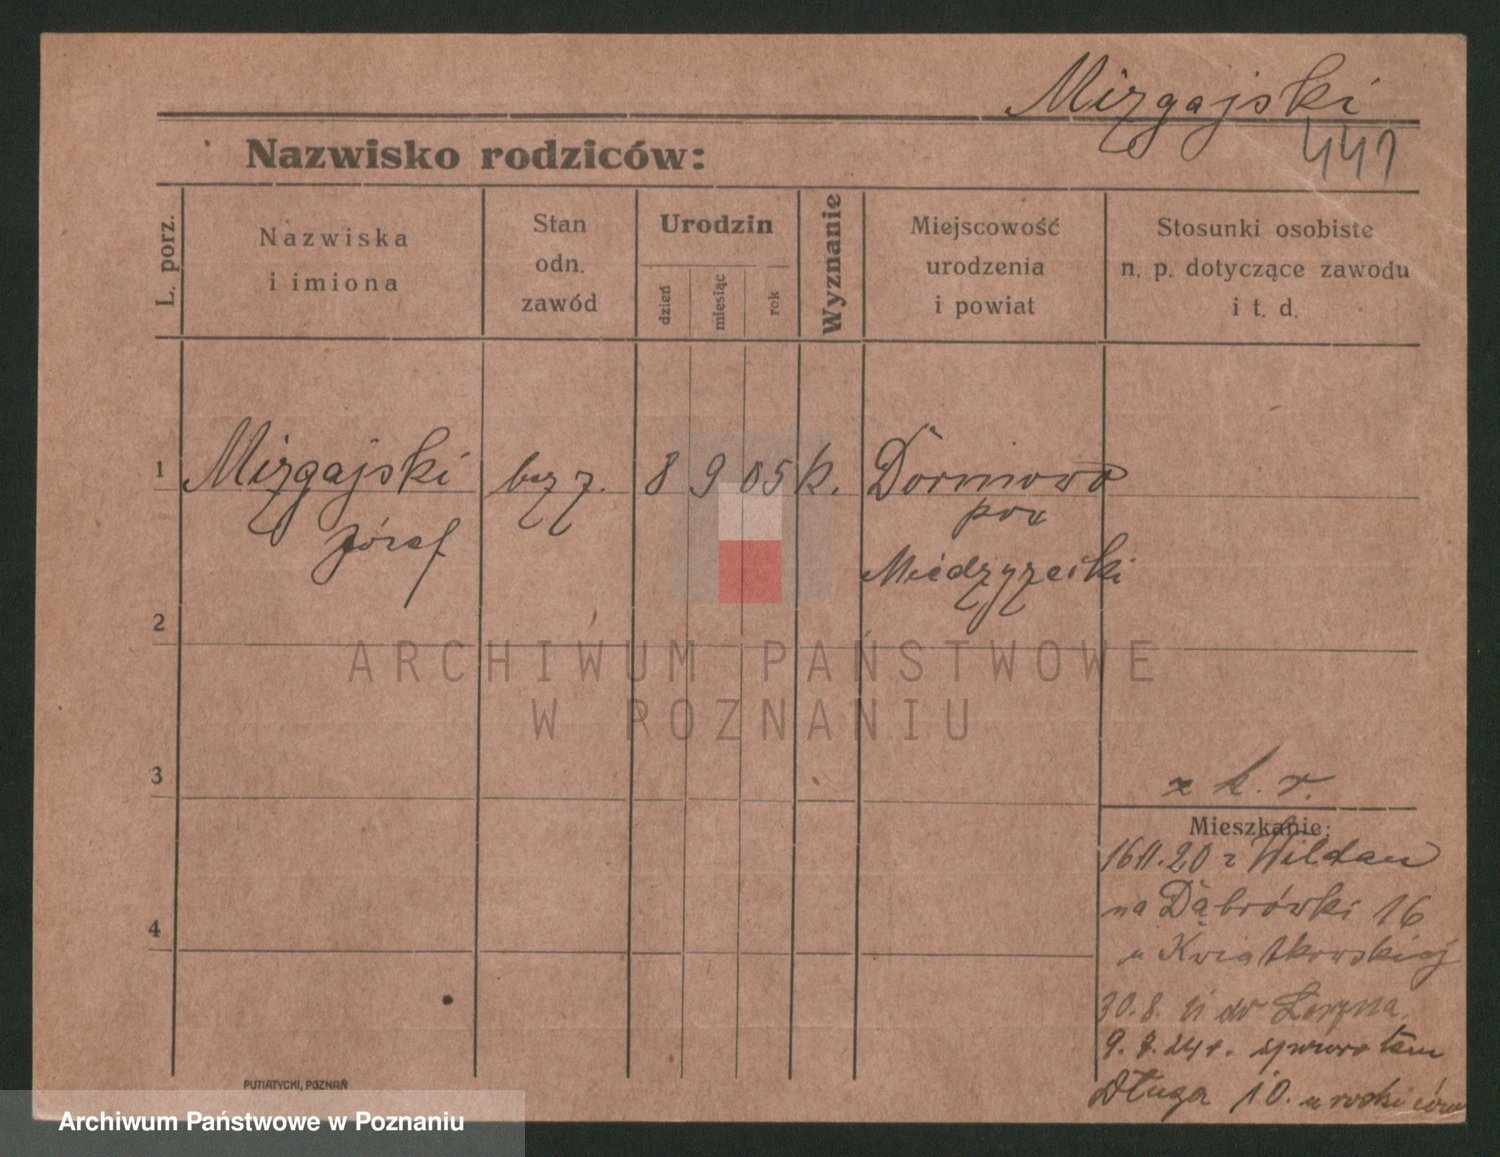 Mizgajski
441
Nazwisko rodziców:
L. porz.
Nazwiska
i imiona
Stan
odn.
zawód
Urodzin
dzień
miesiąc
rok
Wyznanie
Miejscowość
urodzenia
i powiat
Stosunki osobiste
n. p. dotyczące zawodu
i t. d.
1 Mizgajski bez z. 8 9 05 k. Dormowo
Józef
pow
Miedzyrzecki
2
ARCHIWUM PAŃSTWOWE
W POZNANIU
3
z k. r.
Mieszkanie:
16 11. 20 z Wildau
na Dąbrówki 16
u Kwiatkowskiej
4
30. 8. do
9. 24 r. spowrotem
Długa 10. u rodziców
PUTIATYCKI, POZNAŃ
Archiwum Państwowe w Poznaniu